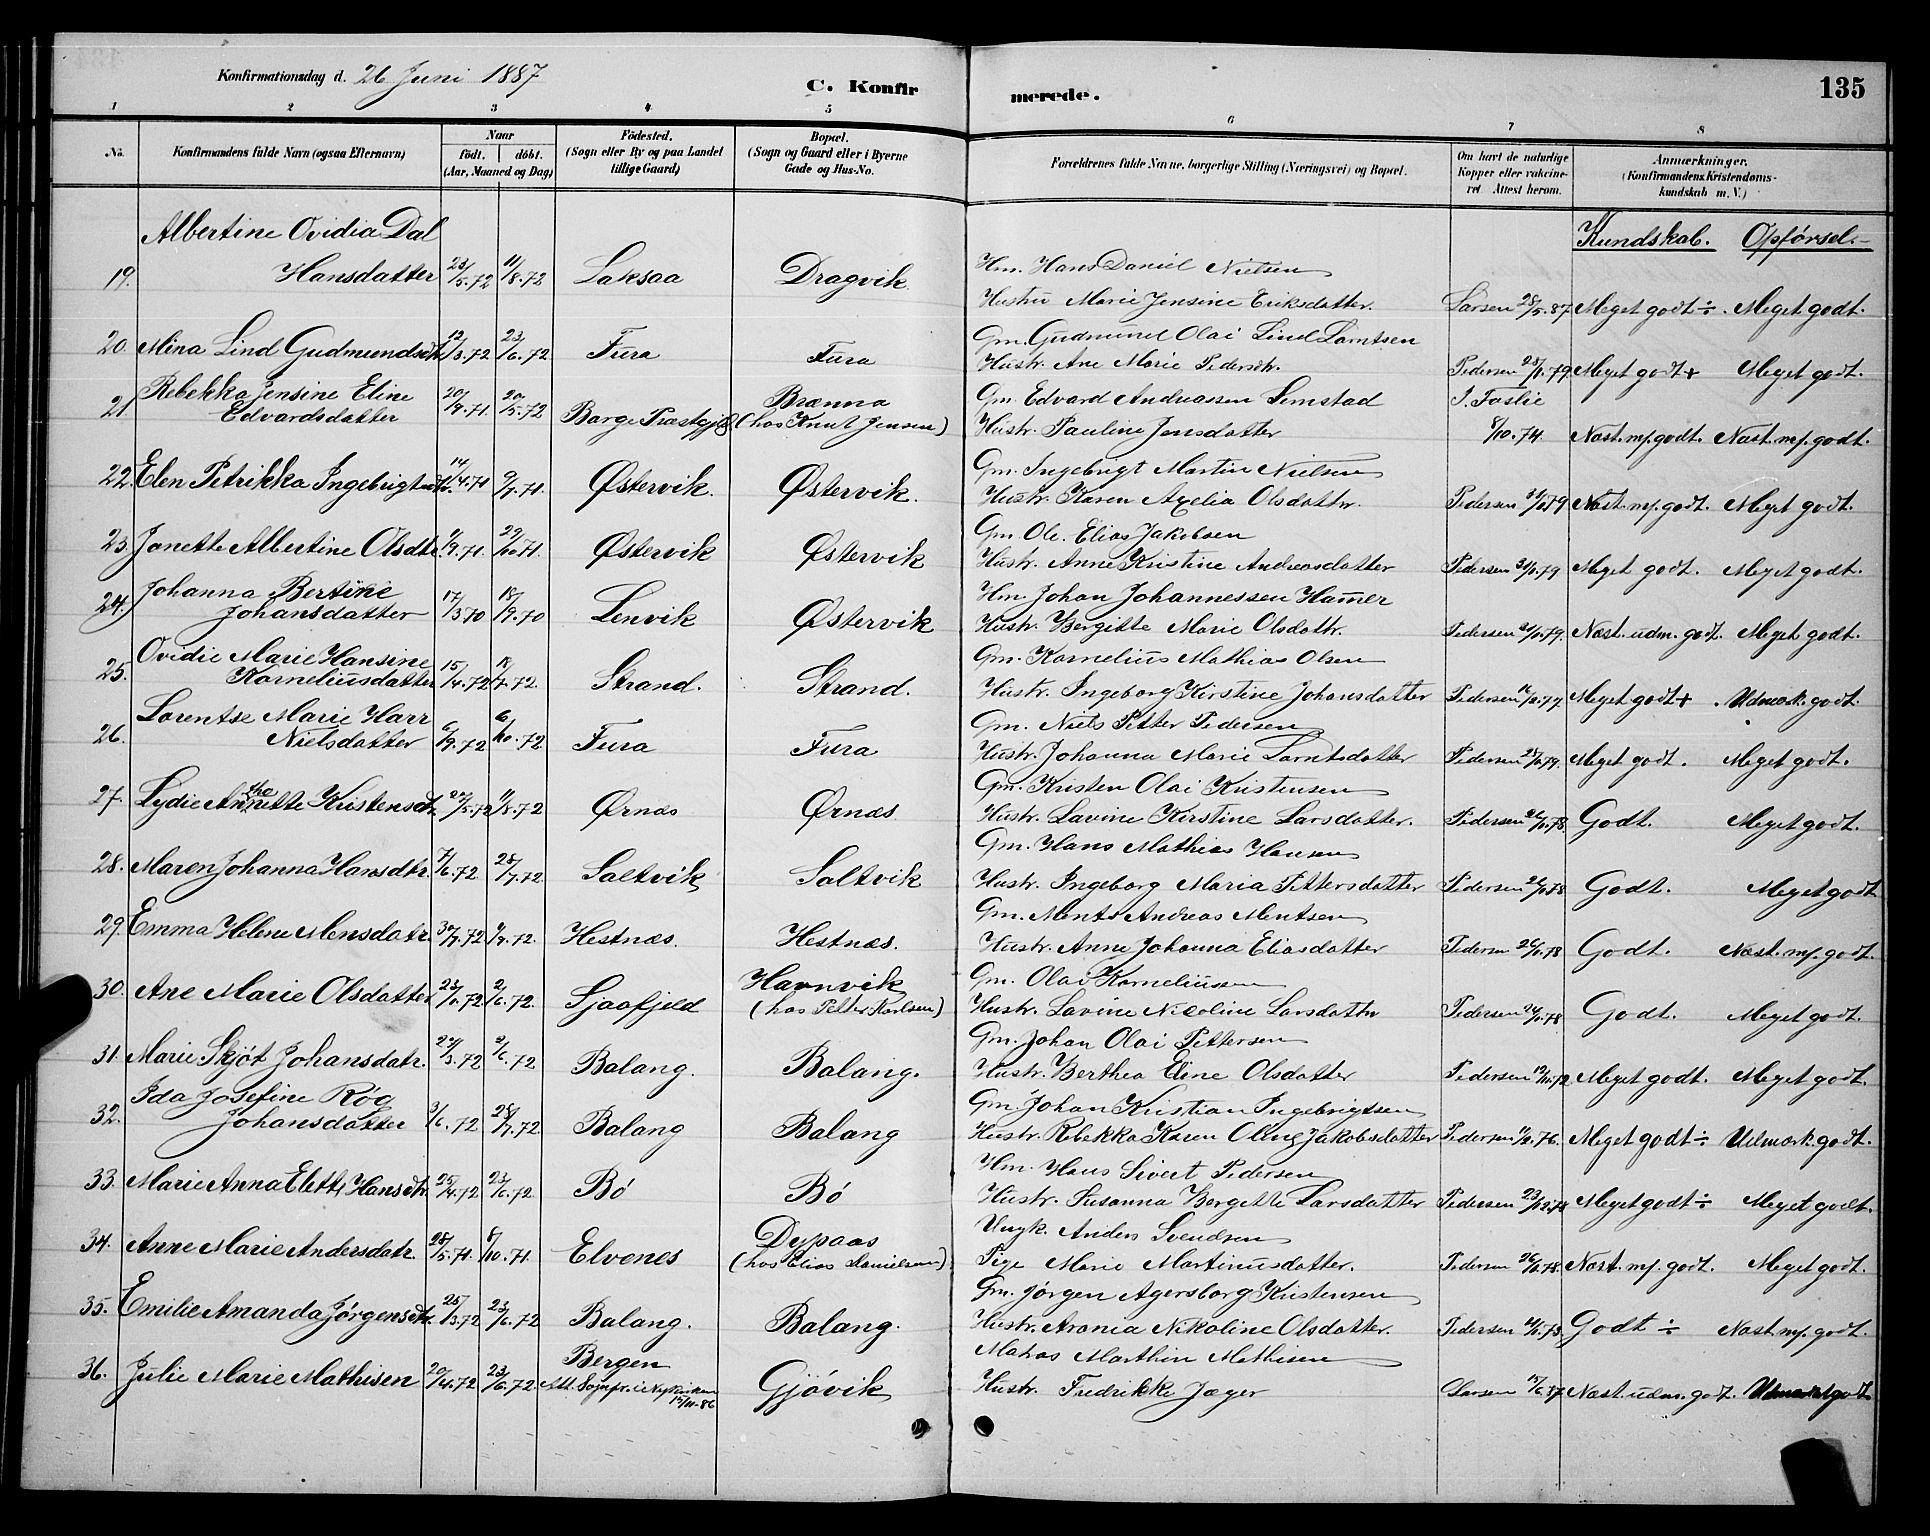 Konfirmationsdag d. 26 Juni 1887
C. Konfirmerede.
135
1 2 3 4 5 6 7 8
No.
Konfirmandens fulde Navn (ogsaa Efternavn)
Naar
födt. döbt.
(Aar, Maaned og Dag)
Födested.
(Sogn eller By og paa Landet
tillige Gaard)
Bopæl.
(Sogn og Gaard eller i Byerne
Gade og Hus-No.
Forældrenes fulde Navne, borgerlige Stilling (Næringsvei) og Bopæl.
Om havt de naturlige
Kopper eller vakcine-
ret. Attest herom.
Anmærkninger.
(Konfirmandens Kristendoms-
kundskab m. V.)
Kundskab. Opförsel.
Albertine Ovidia Dal
19. Hansdatter 23/5.72 11/8.72 Laksaa Dragvik Hm. Hans Daniel Nielsen
Hustru Marie Jensine Eriksdatter. Larsen 28/5.87 Meget godt ÷. Meget godt.
20. Mina Lind Gudmundsdtr. 12/3.72 23/6.72 Fura Fura Gm. Gudmund Olai Lind Larntsen
Hustr. Ane Marie Pedersdtr. Pedersen Meget godt + Meget godt.
Rebekka Jensine Eline
21 Edvardsdatter 20/9.71. 20/5.72 Borge Præstegjeld Brænna (hos Knut Jensen) Gm. Edvard Andreassen Simstad J. Foslie
Hustr. Pauline Jensdatter 8/10.74. Næst. m. godt. Næst. m. godt.
22. Elen Petrikka Ingebrigtsdtr. 14/4.71 9/7.71. Østervik. Østervik. Gm. Ingebrigt Martin Nielsen
Hustr. Karen Axelia Olsdatter. Pedersen Næst. m. godt. Meget godt.
23. Janette Albertine Olsdtr. 9/9.71. 29/10.71. Østervik Østervik Gm. Ole Elias Jakobsen
Hustr. Anne Kristine Andreasdatter Pedersen Meget godt. Meget godt.
Johanna Bertine
24. Johansdatter 17/3.70 18/9.70 Lenvik Østervik Hm. Johan Johannessen Hamer
Hustr. Bergitte Marie Olsdatr. Pedersen Næst. udm. godt. Meget godt.
Ovidie Marie Hansine
25. Korneliusdatter 15/4.72 Strand. Strand. Gm. Kornelius Mathias Olsen
Hustr. Ingeborg Kirstine Johansdatter Pedersen Meget godt + Udmærk. godt.
Lorentse Marie Harr
26. Nielsdatter 6/9.72 6/10.72 Fura Fura Gm. Niels Petter Pedersen
Hustr. Johanna Marie Larntsdatter Pedersen Meget godt. Meget godt.
27. Lydie Annette Kristensdtr. 27/5.72 11/8.72 Ørnæs Ørnæs Gm. Kristen Olai Kristensen
Hustr. Lavine Kirstine Larsdatter. Pedersen Godt. Meget godt.
28. Maren Johanna Hansdtr. 7/6.72 28/7.72 Saltvik Saltvik Gm. Hans Mathias Hansen
Hustr. Ingeborg Maria Pettersdatter Pedersen Godt. Meget godt
29. Emma Helene Mensdatr. Hestnæs. Hestnæs. Gm. Ments Andreas Mentsen
Hustr. Anne Johanna Eliasdatter Pedersen Godt. Næst. m. godt.
30. Ane Marie Olsdatter 2/6.72. Sjaafjeld Havnvik (hos Petter Karlsen) Gm. Olai Korneliussen
Hustr. Lavine Nicoline Larsdattr Pedersen Godt. Meget godt.
31. Marie Skjöt Johansdatr. 22/3.72 2/6.72 Balang. Balang. Gm. Johan Olai Pettersen
Hustr. Berthea Eline Olsdatter Pedersen Meget godt. Meget godt.
Ida Josefine Röo
32. Johansdatter 3/6.72 28/7.72 Balang Balang Gm. Johan Kristian Ingebrigtsen
Hustr. Rebekka Karen Oline Jakobsdatter Pedersen Meget godt ÷ Udmærk. godt.
33. Marie Anna Elette Hansdtr. 25/4.72 23/6.72. Bö Bö Hm. Hans Sivert Pedersen
Hustr. Susanna Bergitte Larsdatter Pedersen 23/12.78 Meget godt ÷ Meget godt.
34. Anne Marie Andersdatr. 28/5.71 8/10.71. Elvenes Dypaas (hos Elias Danielsen) Ungk. Anders Svendsen
Pige Marie Martinusdatter. Pedersen Næst. m. godt. Meget godt.
35. Emilie Amanda Jörgensdtr. 25/3.72 23/6.72 Balang. Balang. Gm. Jörgen Agersborg Kristensen
Hustr. Aronia Nikoline Olsdatter. Pedersen Godt ÷ Næst. m. godt.
36. Julie Marie Mathisen 20/4.72 23/6.72. Bergen Gjövik Matros Marthin Mathisen
Att. Sognepr. i Nykirken 15/11-86 Hustr. Fredrikke Jæger Larsen Næst. udm. godt. Udmærket godt.